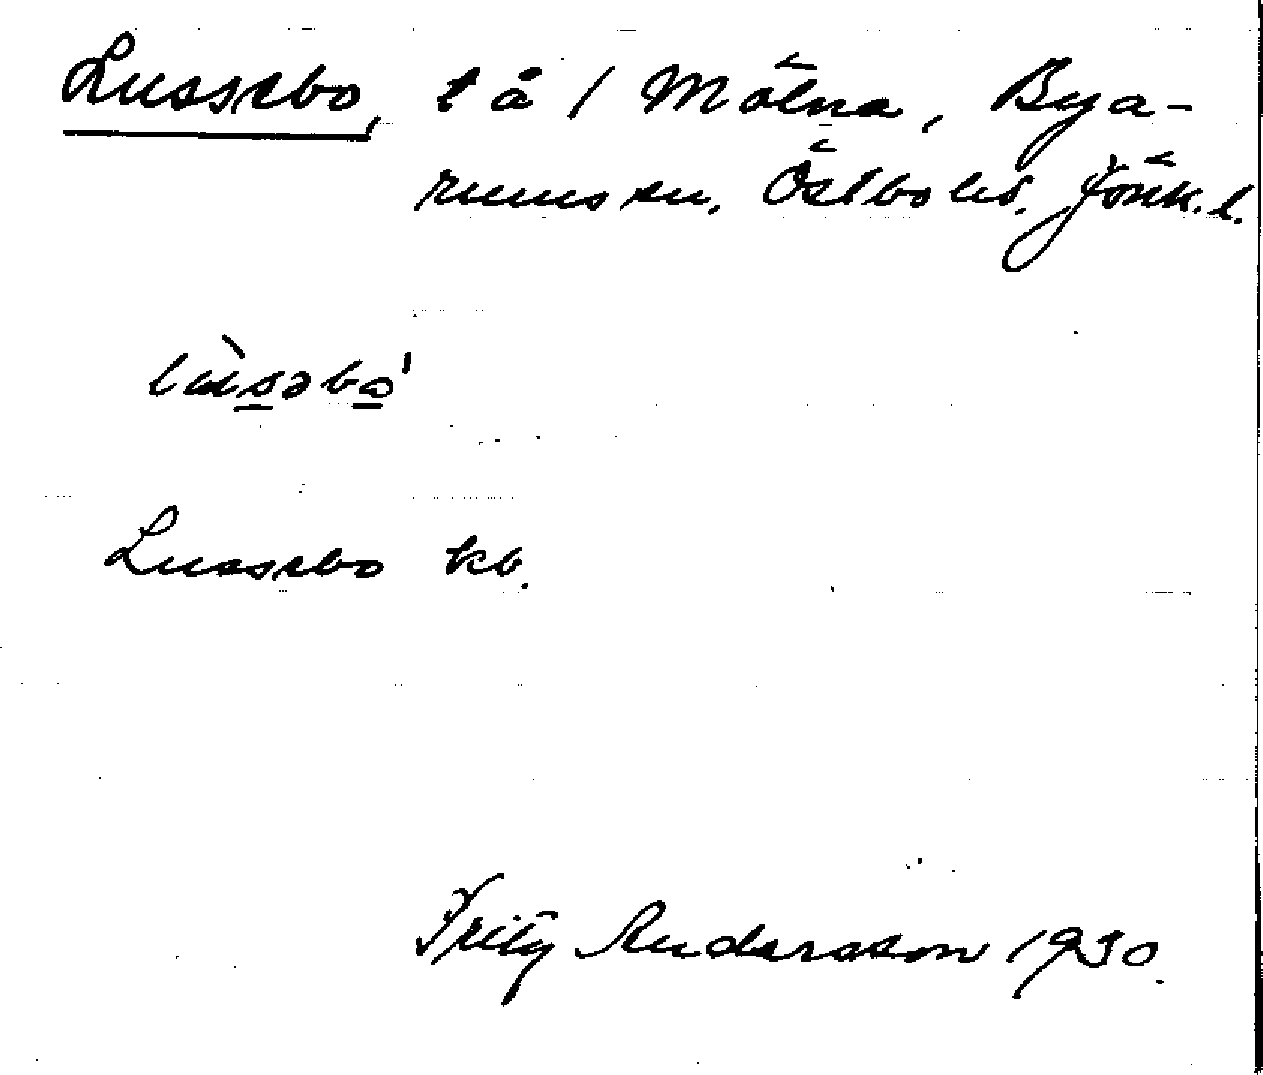 Lussebo, t å / Mölna, Bya-
rums sn. Östbo hd. Jönk. l.
lùsəbo'
Lussebo kb.
Fritz Andersson 1930.